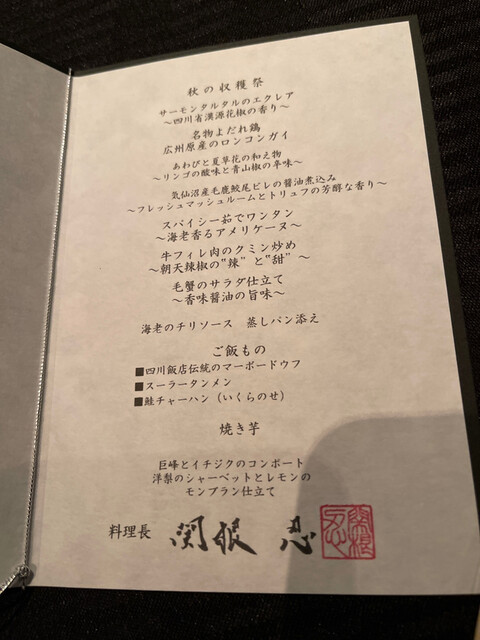 秋の収穫祭
サーモンタルタルのエクレア
～四川省漢源花椒の香り～
名物よだれ鶏
広州原産のロンコンガイ
あわびと夏草花の和え物
～リンゴの酸味と青山椒の辛味～
気仙沼産毛鹿鮫尾ビレの醤油煮込み
～フレッシュマッシュルームとトリュフの芳醇な香り～
スパイシー茹でワンタン
～海老香るアメリケーヌ～
牛フィレ肉のクミン炒め
～朝天辣椒の"辣"と"甜"～
毛蟹のサラダ仕立て
～香味醤油の旨味～
海老のチリソース 蒸しパン添え
ご飯もの
■四川飯店伝統のマーボードウフ
■スーラータンメン
■鮭チャーハン（いくらのせ）
焼き芋
巨峰とイチジクのコンポート
洋梨のシャーベットとレモンの
モンブラン仕立て
料理長 関根 忍